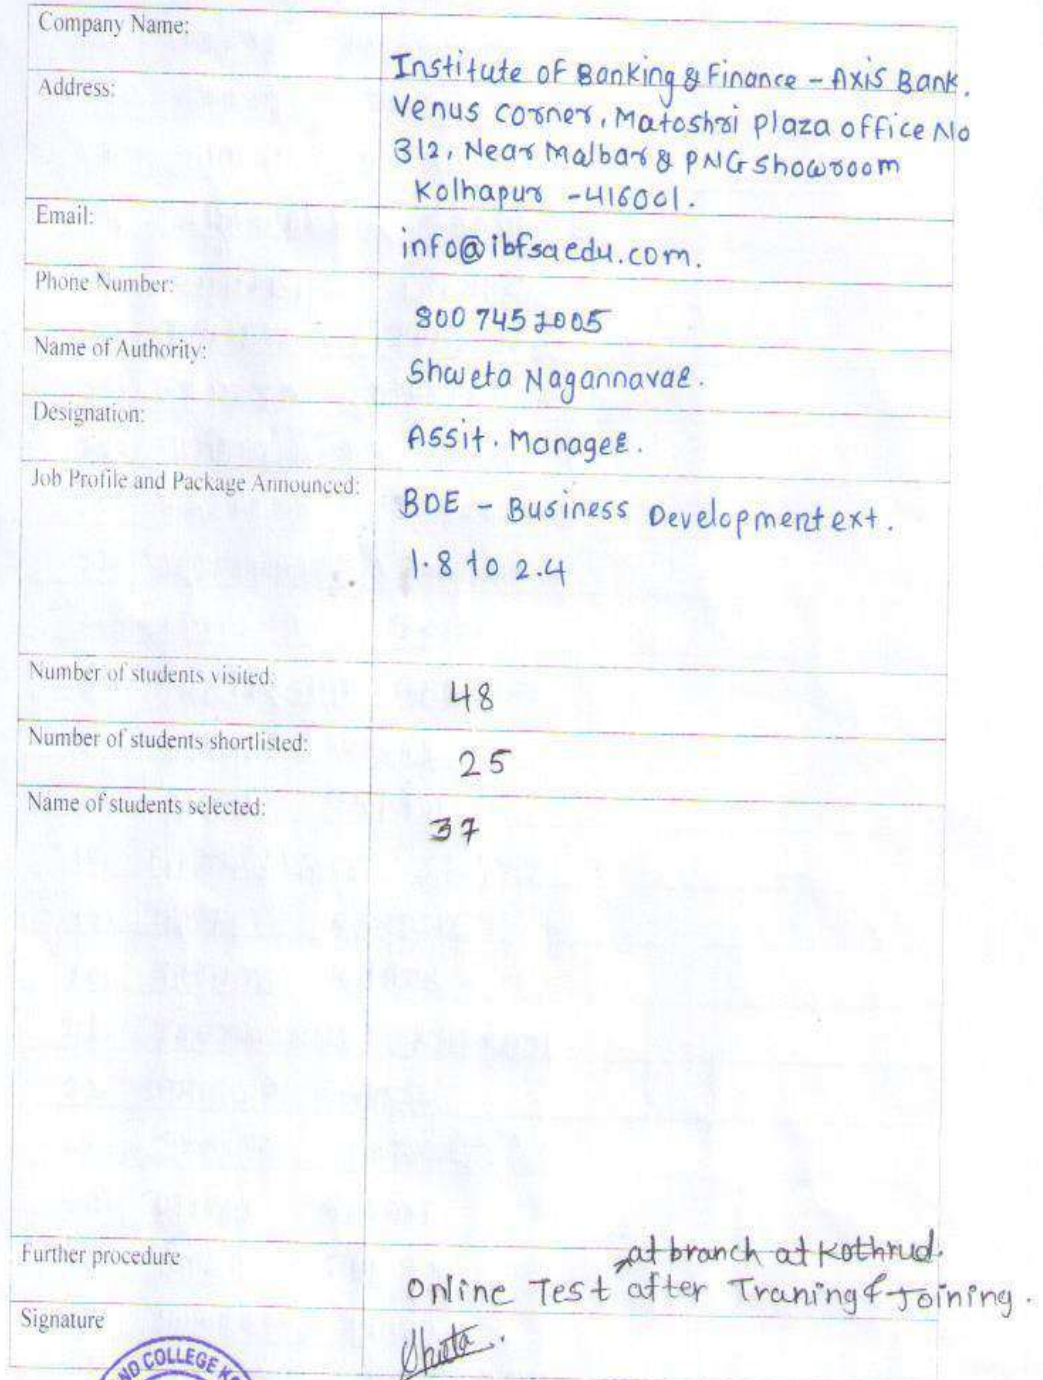 Company Name:
Institute of Banking & Finance - Axis Bank.
Address:
Venus corner, Matoshri Plaza office No
312, Near Malbar & PNG Showroom
Kolhapur - 416001.
Email:
info@ibfsaedu.com.
Phone Number:
800 745 2005
Name of Authority:
Shweta Nagannavar.
Designation:
Assit. Manager.
Job Profile and Package Announced:
BDE - Business Development ext.
1.8 to 2.4
Number of students visited:
48
Number of students shortlisted:
25
Name of students selected:
37
Further procedure
at branch at Kothrud.
Online Test after Traning & Joining.
Signature
ND COLLEGE KO